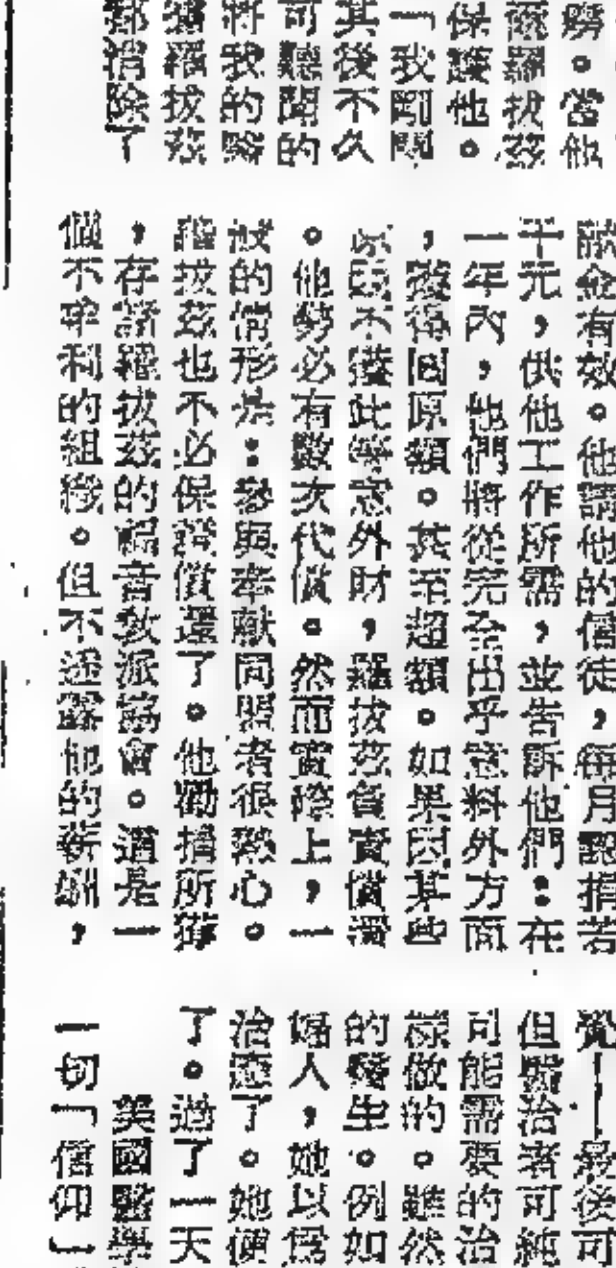 勝。當他
爾羅拔茲
保護他。
「我剛剛
其後不久
可聽聞的
將我的
羅拔茲
都消除了
金有效。他請他的信徒,每月認捐若
千元,供他工作所需,並告訴他們:在
一年內,他們將從完全出乎意料外方面
,獲得回原額。甚至超額。如果因某些
原因不獲此等意外財,羅拔茲負責償還
。他勢必有數次代償。然而實際上,一
般的情形是:參與奉獻同盟者很熱心。
羅拔茲也不必保證償還了。他勸捐所獲
,存諸羅拔茲的福音教派協會。這是一
個不牟利的組織。但不透露他的薪酬,
覺—最後可
但醫治者可純
可能需要的治
樣做的。雖然
的發生。例如
婦人,她以為
治癒了。她便
了。過了一天
美國醫學
一切「信仰」